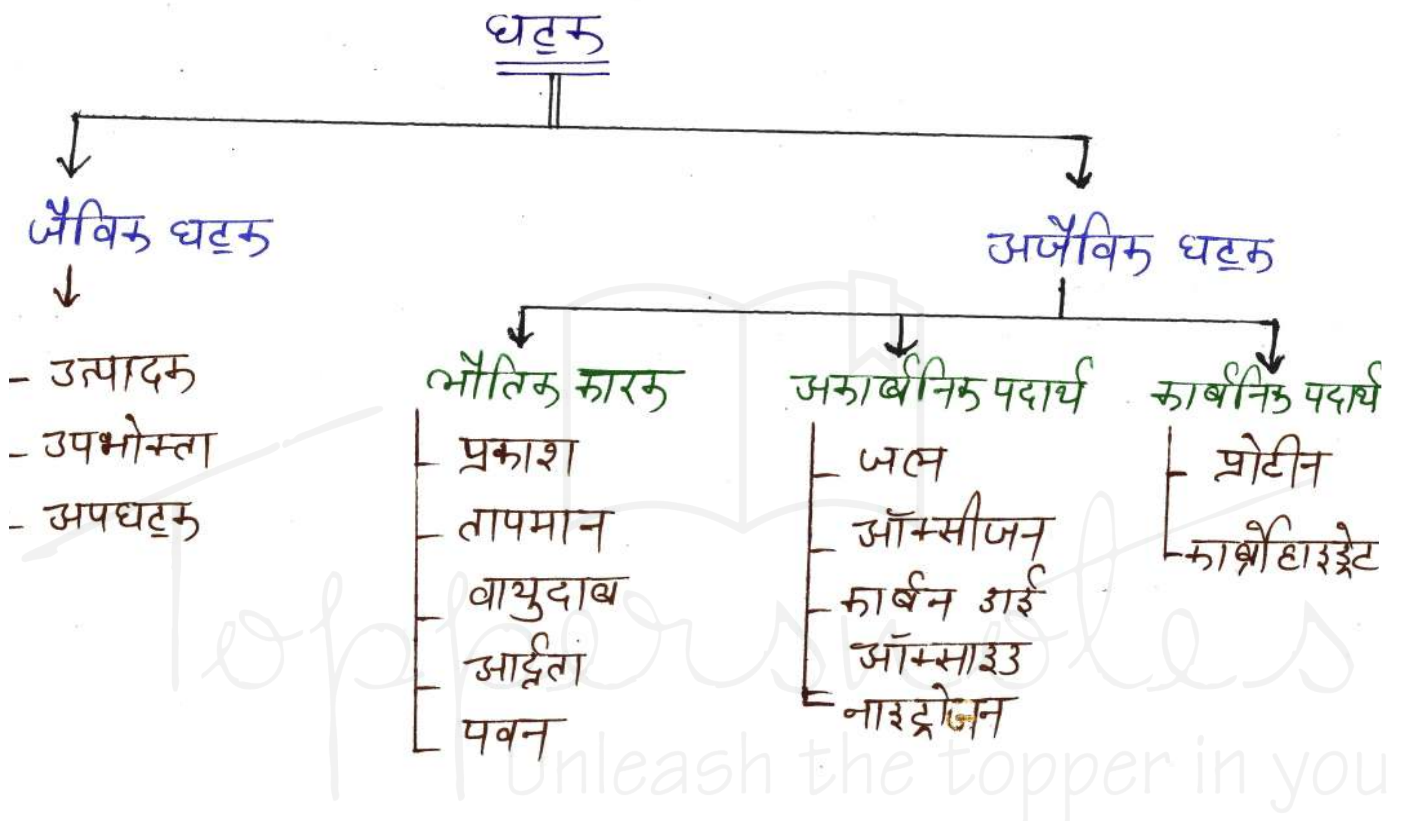 घटक
जैविक घटक
- उत्पादक
- उपभोक्ता
- अपघटक
अजैविक घटक
भौतिक कारक
प्रकाश
तापमान
वायुदाब
आर्द्रता
पवन
अकार्बनिक पदार्थ
जल
ऑक्सीजन
कार्बन डाई
ऑक्साइड
नाइट्रोजन
कार्बनिक पदार्थ
प्रोटीन
कार्बोहाइड्रेट
Toppersnotes
Unleash the topper in you